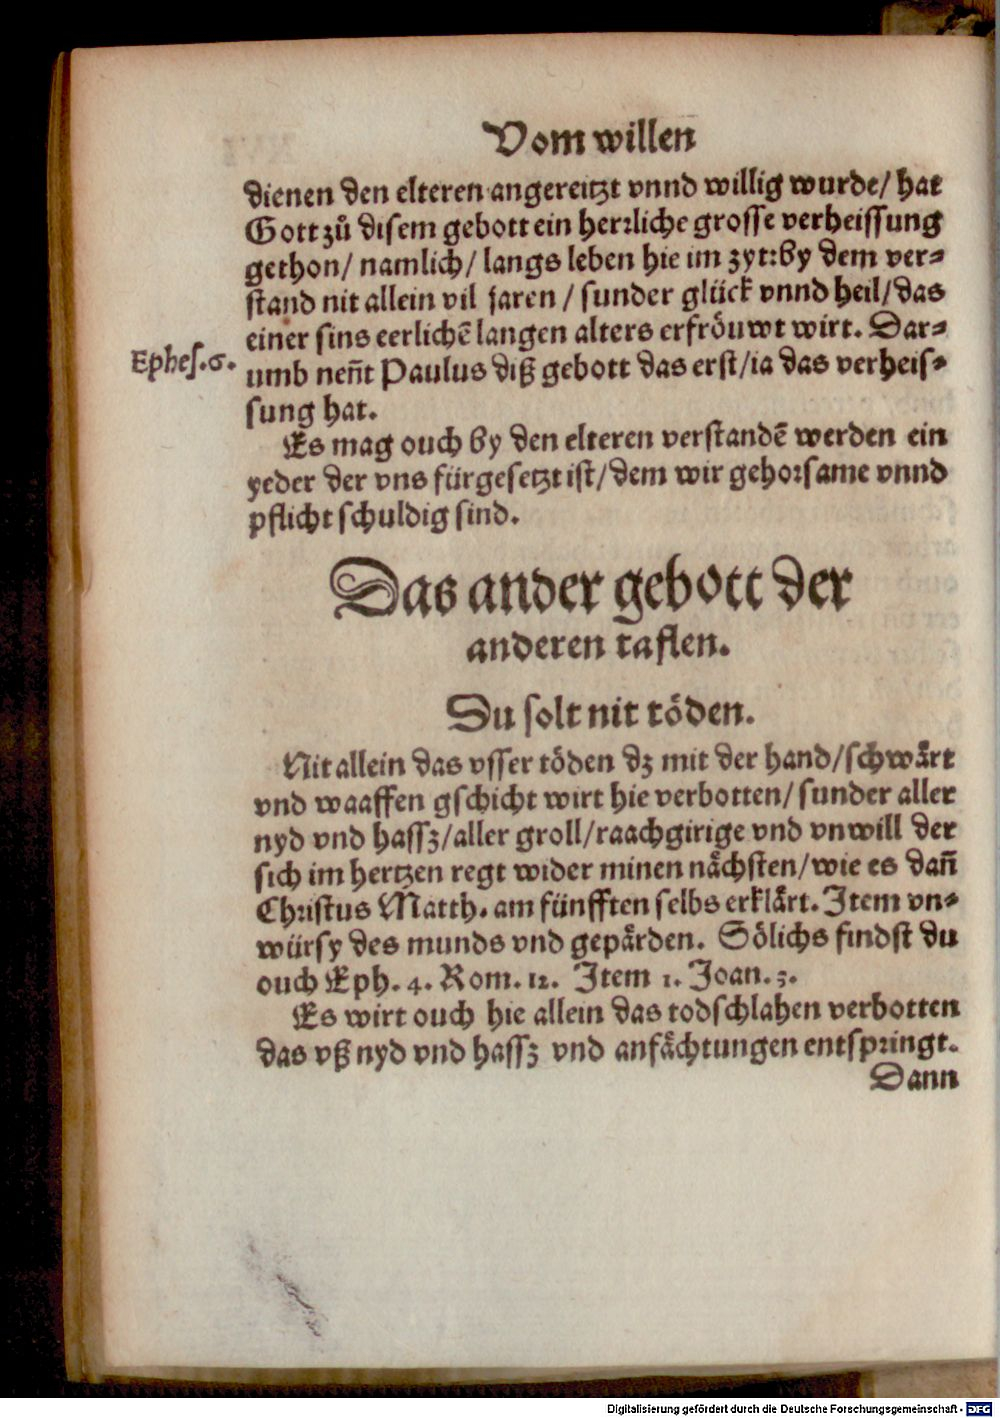 Vom willen
dienen den elteren angereitzt vnnd willig wurde/ hat
Gott zů disem gebott ein herꝛliche grosse verheissung
gethon/ namlich/ langs leben hie im zyt: by dem ver⸗
stand nit allein vil jaren / sunder glück vnnd heil/ das
einer sins eerlichē langen alters erfröuwt wirt. Dar⸗
Ephes.6.
umb neñt Paulus diß gebott das erst/ ia das verheis⸗
sung hat.
Es mag ouch by den elteren verstandē werden ein
yeder der vns fürgesetzt ist/ dem wir gehorsame vnnd
pflicht schuldig sind.
Das ander gebott der
anderen taflen.
Du solt nit töden.
Nit allein das vsser töden dz mit der hand/ schwärt
vnd waaffen gschicht wirt hie verbotten/ sunder aller
nyd vnd hassz/ aller groll/ raachgirige vnd vnwill der
sich im hertzen regt wider minen nächsten/ wie es dañ
Christus Matth. am fünfften selbs erklärt. Item vn⸗
würsy des munds vnd gepärden. Sölichs findst du
ouch Eph. 4. Rom. 12. Item 1. Joan. 3.
Es wirt ouch hie allein das todschlahen verbotten
das vß nyd vnd hassz vnd anfächtungen entspringt.
Dann
Digitalisierung gefördert durch die Deutsche Forschungsgemeinschaft - DFG